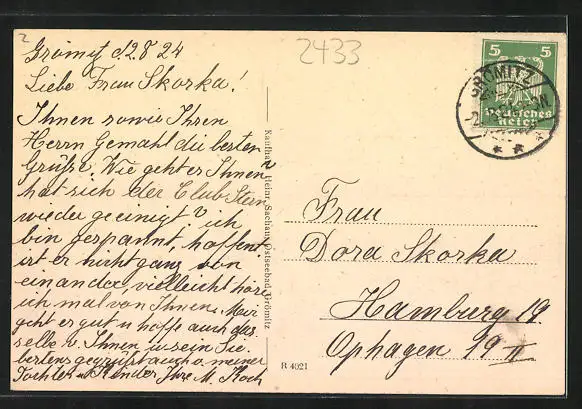 2433
Grömitz d. 2.8.24
Liebe Frau Skorka!
Ihnen sowie Ihren
Herrn Gemahl die besten
Grüße. Wie geht es Ihnen?
hat sich der Club Stern
wieder geeinigt? ich
bin gespannt, hoffent
ist er nicht ganz von
einander, vielleicht höre
ich mal von Ihnen. Mir
geht es gut u hoffe auch das
selbe v. Ihnen u sein Sie
bestens gegrüßt auch v. meiner
Tochter u Kinder Ihre M. Koch
Kaufhaus Heinr. Sachau, Ostseebad Grömitz
R 4021
5 5
Deutsches
Reich
GRÖMITZ
Frau
Dora Skorka
Hamburg 19.
Ophagen 19 II